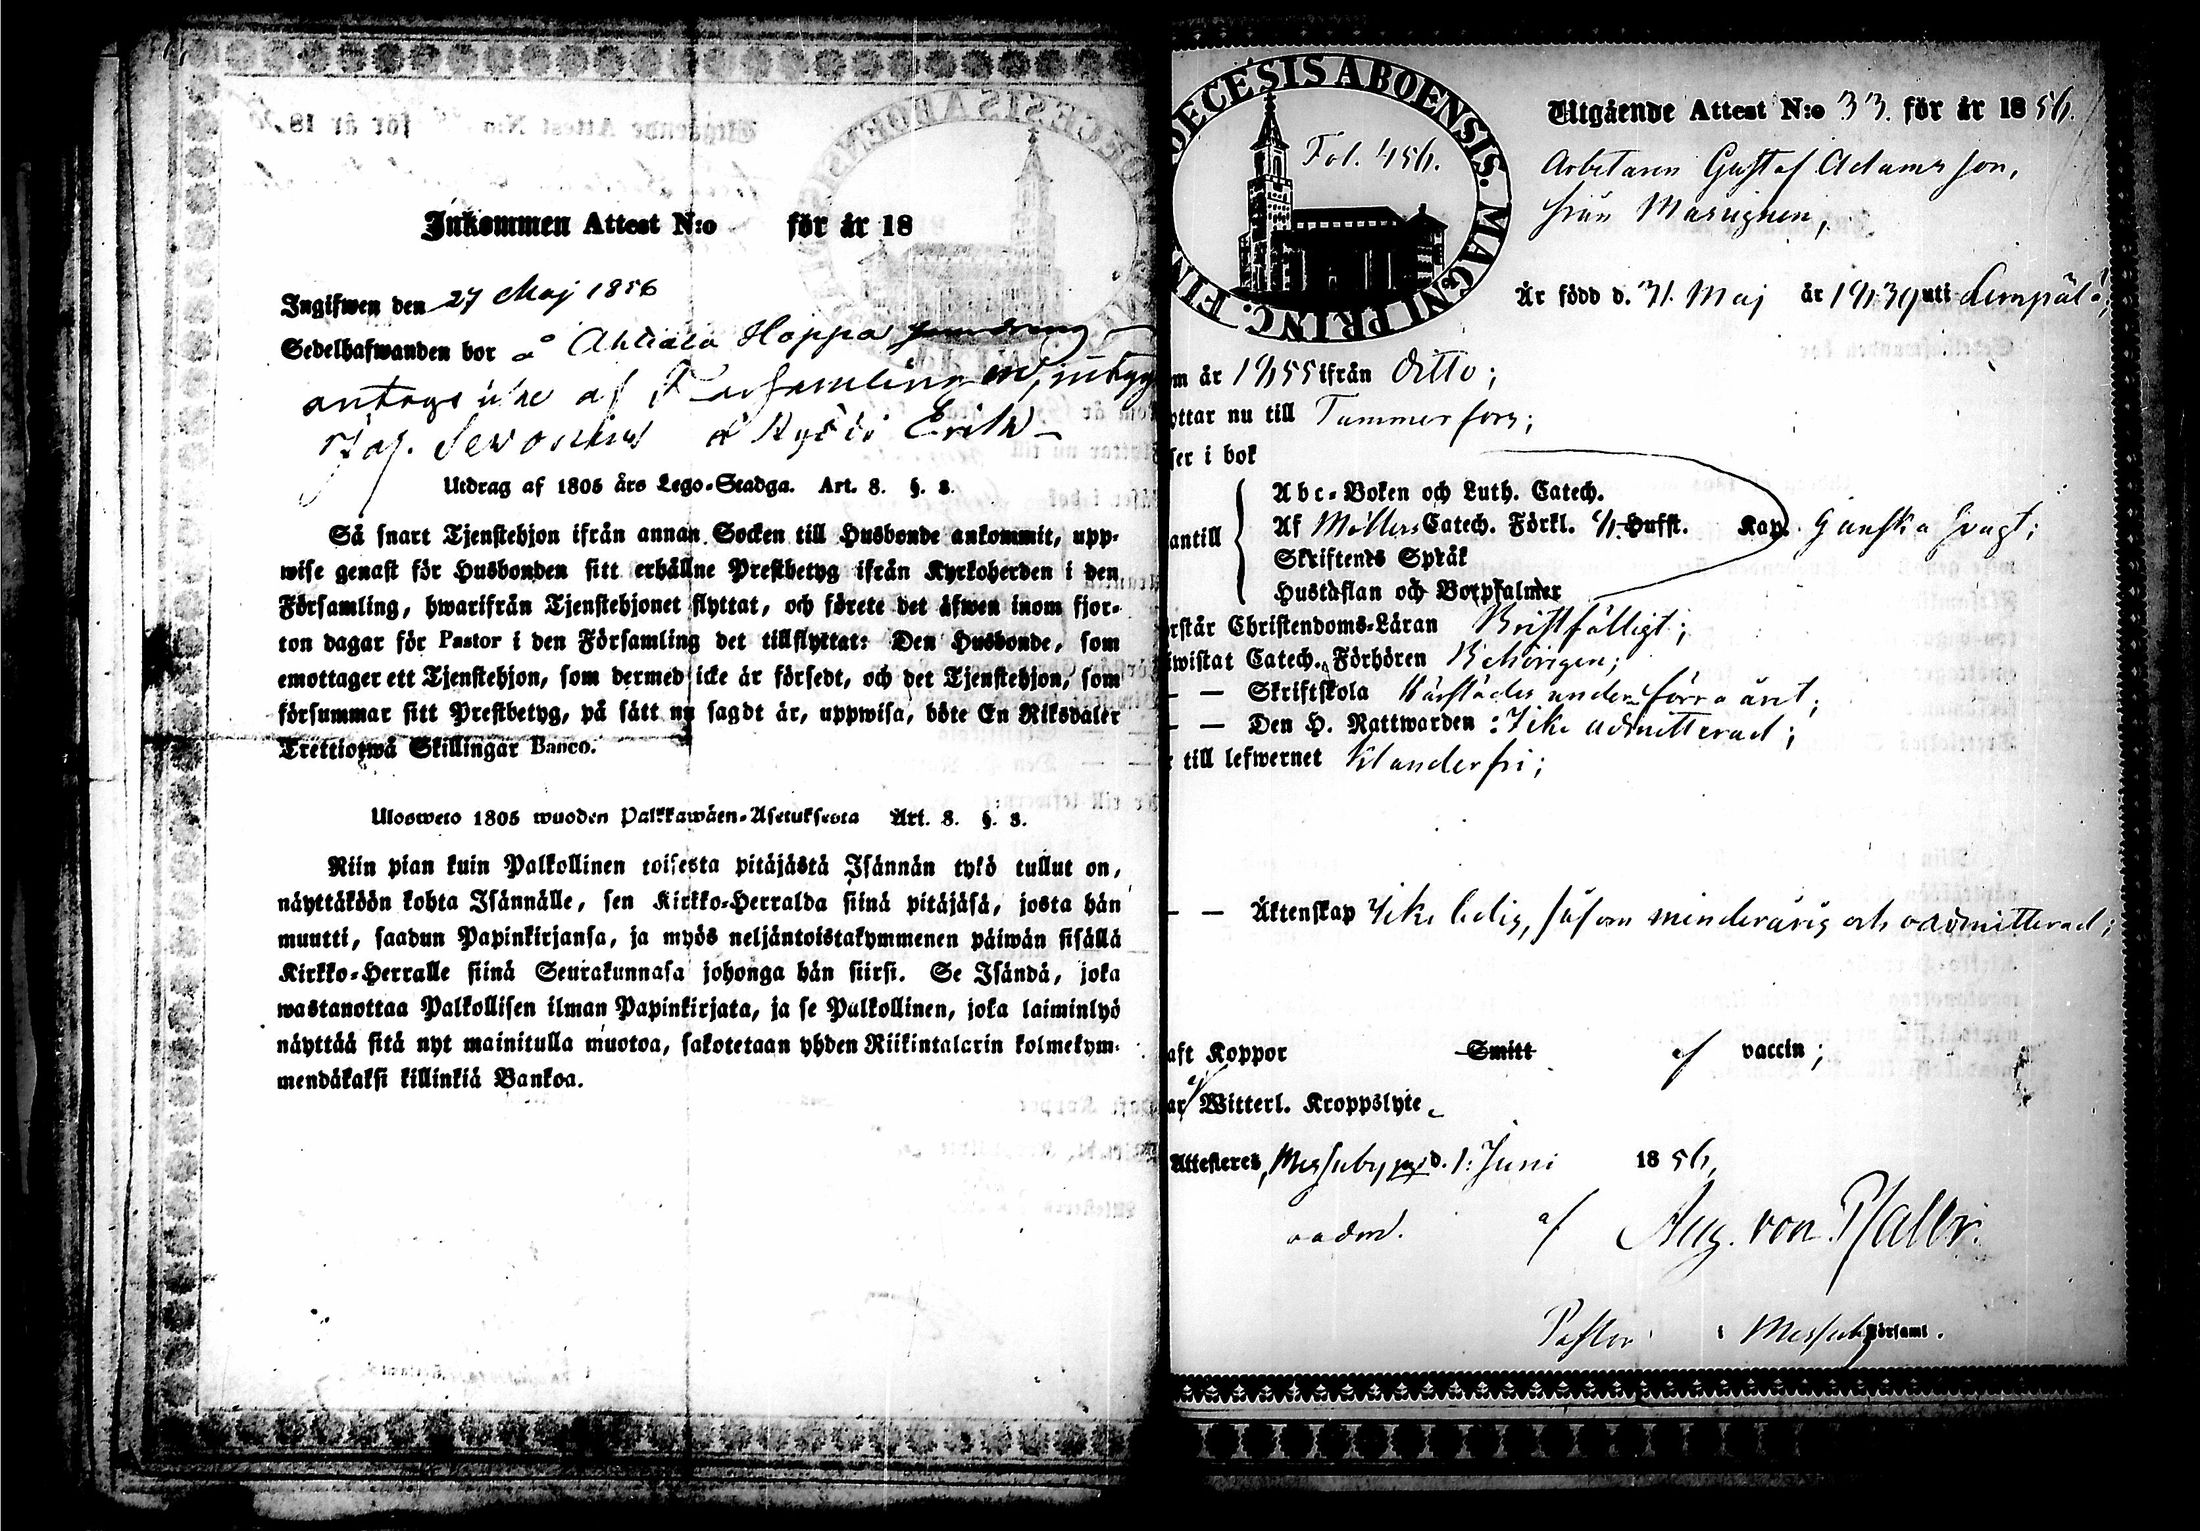 Inkommen Attest N:o för år 18
Ingifwen den 27 Maj 1856
Sedelhafwanden bor å Ahlialo Hoppa
antages icke af Församling
Utdrag af 1805 års Lego-Stadga. Art. 8. §. 3.
Så snart Tjenstehjon ifrån annan Socken till Husbonde ankommit, upp-
wise genast för Husbonden sitt erhållne Prestbetyg ifrån Kyrkoherden i den
Församling, hwarifrån Tjenstehjonet flyttat, och förete det äfwen inom fjor-
ton dagar för Pastor i den Församling det tillflyttat: Den Husbonde, som
emottager ett Tjenstehjon, som dermed icke är försedt, och det Tjenstehjon, som
försummar sitt Prestbetyg, på sätt nu sagdt är, uppwisa, böte En Riksdaler
Trettiotwå Skillingar Banco.
Uloswето 1805 wuoden Palkkawäen-Asetuksesta Art. 8. §. 3.
Niin pian kuin Palkollinen toisesta pitäjästä Isännän tykö tullut on,
näyttäköön kohta Isännälle, sen Kirkko-Herralda siinä pitäjäsä, josta hän
muutti, saadun Papinkirjansa, ja myös neljäntoistakymmenen päiwän sisällä
Kirkko-Herralle siinä Seurakunnasa johonga hän siirsi. Se Isändä, joka
wastanottaa Palkollisen ilman Papinkirjata, ja se Palkollinen, joka laiminlyö
näyttää sitä nyt mainitulla muotoa, sakotetaan yhden Riikintalarin kolmekym-
mendäkaksi killinkiä Bankoa.
DECESIS ABOENSIS. MAGNI PRINC. FIN
Fol. 456.
Utgående Attest N:o 33. för år 1856.
Arbetaren Gustaf Adamsson,
från Masugnen,
Är född d. 31. Maj år 1839 uti Lempälä;
m år 1855 ifrån ditto;
yttar nu till Tammerfors;
ser i bok
antill
Abc-Boken och Luth. Catech.
Af Möllers Catech. Förkl. Hufst. Kap. Ganska svagt;
Skriftenes Språk
Hustaflan och Botpsalmer
rstår Christendoms-Läran Bristfälligt;
iwistat Catech. Förhören Behörigen;
— — Skriftskola härstädes under förra året;
— — Den H. Nattwarden: Icke admitterad;
r till lefwernet Klanderfri;
— — Äktenskap Icke ledig, såsom minderårig och oadmitterad;
aft Koppor Smitt af vaccin;
ar Witterl. Kroppslyte
Attesteres, Messuby d. 1. Juni 1856,
oadm. af Aug. von Pfaler.
Pastor i Messuby Församl.